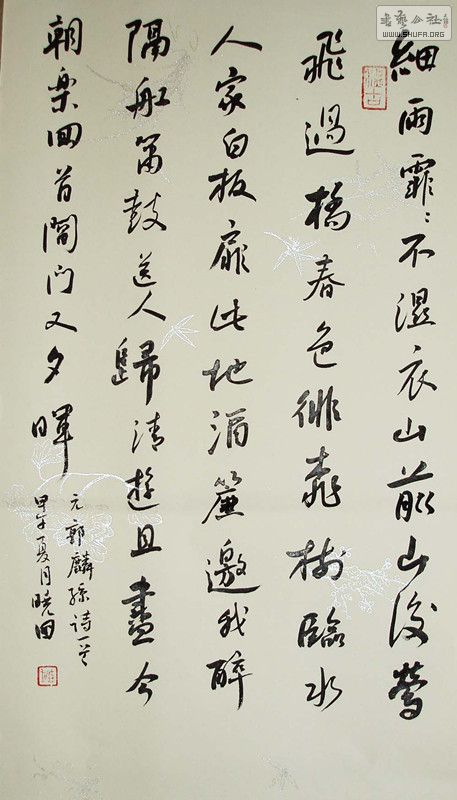 細雨霏〻不濕衣山前山後鶯
飛過橋春色緋桃樹臨水
人家白板扉此地酒簾邀我醉
隔船簫鼓送人歸清遊且盡今
朝樂回首閶門又夕暉
元郭麟孫詩一首
甲午夏月曉田
書藝公社
WWW.SHUFA.ORG